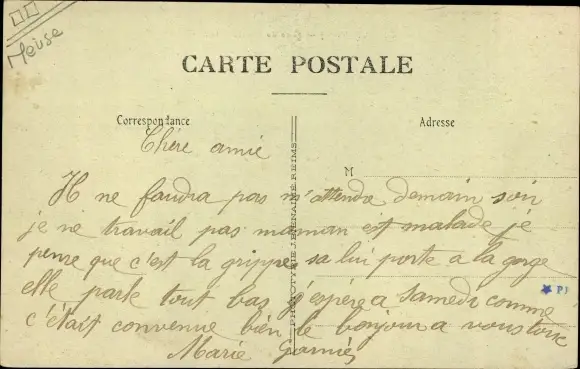 Meuse
CARTE POSTALE
Correspondance
Adresse
Chère amie
M
Il ne faudra pas m'attendre demain soir
je ne travail pas maman est malade je
pense que c'est la grippe sa lui porte a la gorge
elle parle tout bas j'espère a samedi comme
c'était convenue bien le bonjour a vous tous
Marie
PHOTOTYPIE J. BIENAIMÉ REIMS
PJ